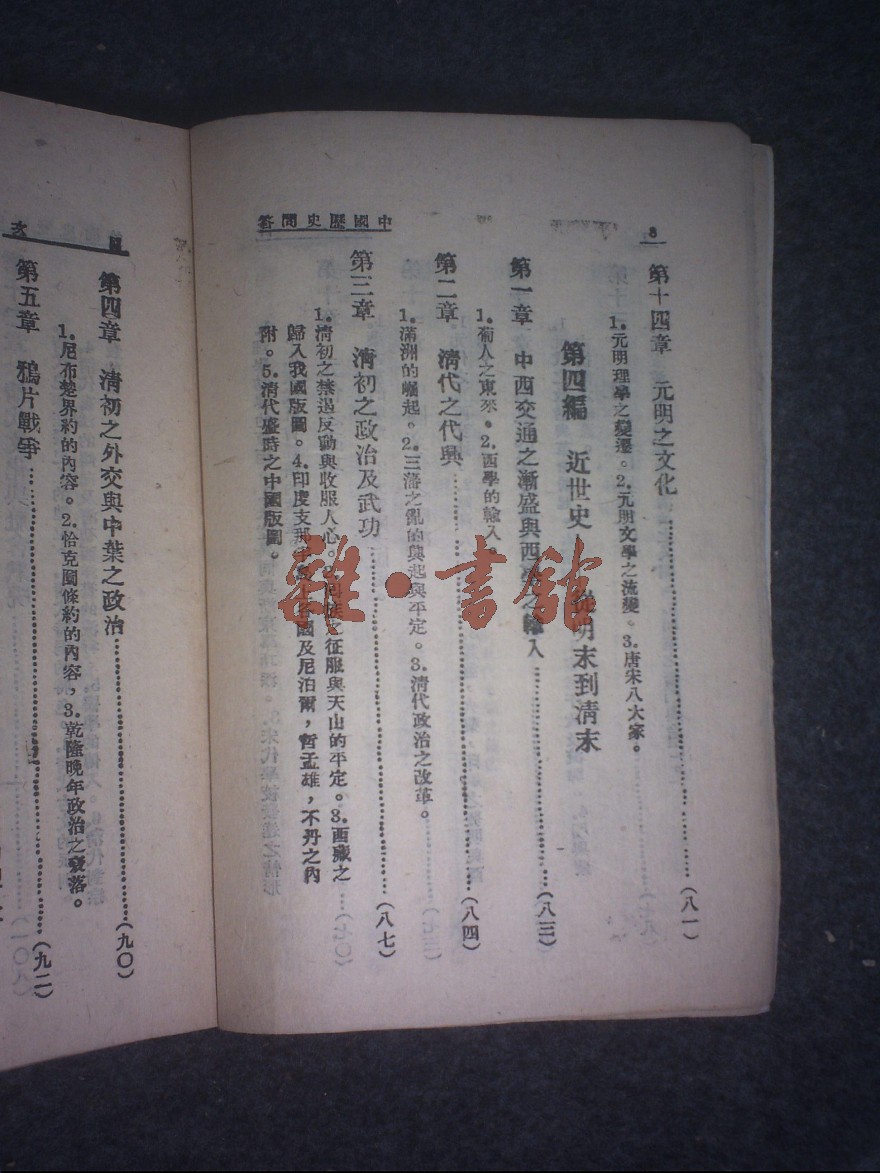 8
中國歷史問答
第十四章　元明之文化……(八一)
1.元明理學之變遷。2.元明文學之流變。3.唐宋八大家。
第四編　近世史　從明末到清末
第一章　中西交通之漸盛與西學之輸入……(八三)
1.葡人之東來。2.西學的輸入。
第二章　清代之代興……(八四)
1.滿洲的崛起。2.三藩之亂的興起與平定。3.清代政治之改革。
第三章　清初之政治及武功……(八七)
1.清初之禁遏反動與收服人心。之征服與天山的平定。3.西藏之
歸入我國版圖。4.印度支那各國及尼泊爾，哲孟雄，不丹之內
附。5.清代盛時之中國版圖。
目
次
第四章　清初之外交與中葉之政治……(九〇)
1.尼布楚界約的內容。2.恰克圖條約的內容，3.乾隆晚年政治之衰落。
第五章　鴉片戰爭……(九二)
雜·書館